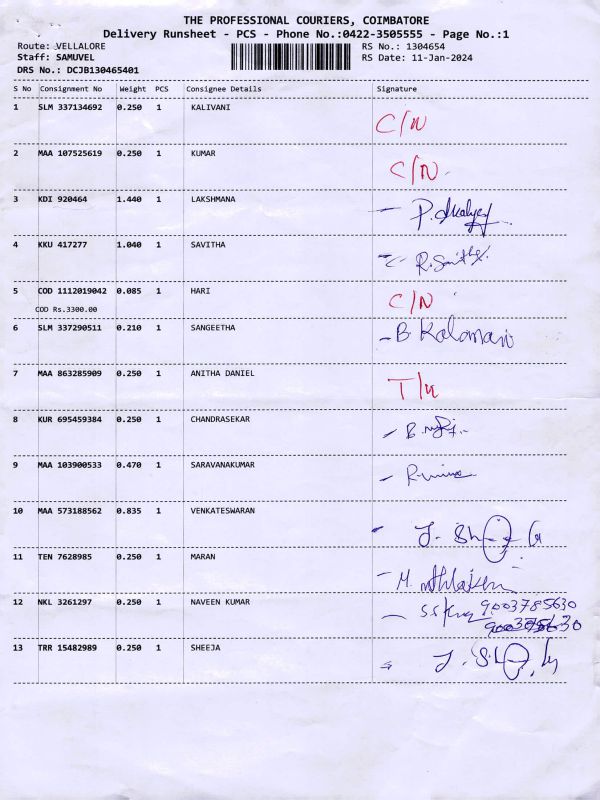 THE PROFESSIONAL COURIERS, COIMBATORE
Delivery Runsheet - PCS - Phone No.:0422-3505555 - Page No.:1
Route: VELLALORE RS No.: 1304654
Staff: SAMUVEL RS Date: 11-Jan-2024
DRS No.: DCJB130465401
S No Consignment No Weight PCS Consignee Details Signature
1 SLM 337134692 0.250 1 KALIVANI C/N
2 MAA 107525619 0.250 1 KUMAR C/N
3 KDI 920464 1.440 1 LAKSHMANA
4 KKU 417277 1.040 1 SAVITHA
5 COD 1112019042 0.085 1 HARI C/N
COD Rs.3300.00
6 SLM 337290511 0.210 1 SANGEETHA - B. Kalamani
7 MAA 863285909 0.250 1 ANITHA DANIEL
8 KUR 695459384 0.250 1 CHANDRASEKAR
9 MAA 103900533 0.470 1 SARAVANAKUMAR
10 MAA 573188562 0.835 1 VENKATESWARAN
11 TEN 7628985 0.250 1 MARAN
12 NKL 3261297 0.250 1 NAVEEN KUMAR 9003785630
13 TRR 15482989 0.250 1 SHEEJA